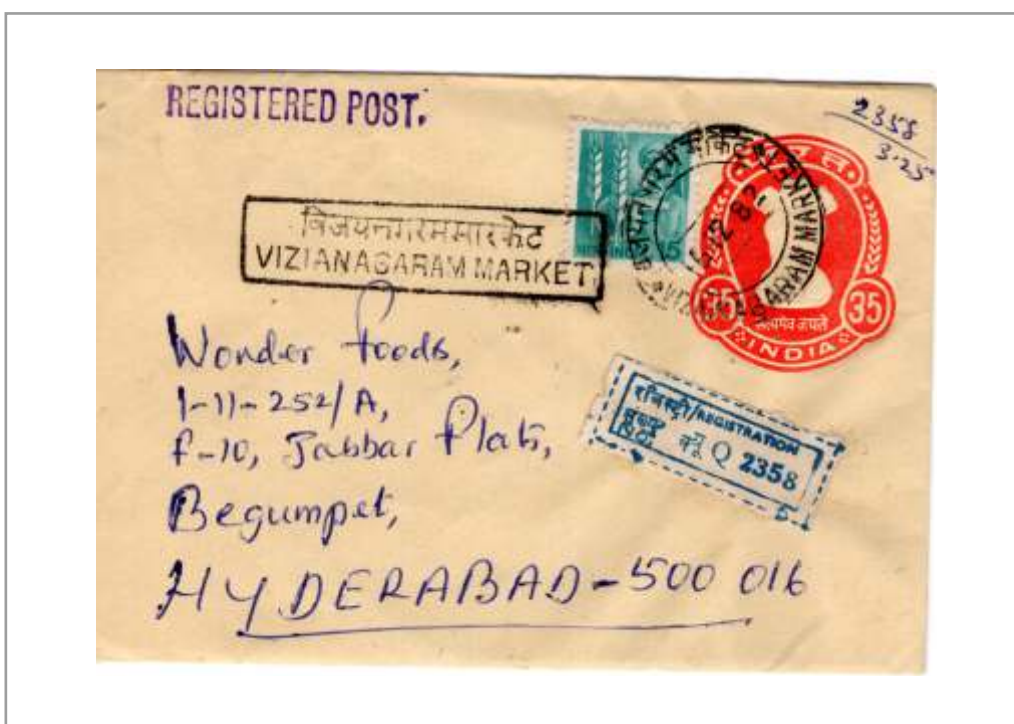 REGISTERED POST.
2358
3.25
विजयनगरम मारकेट
VIZIANAGARAM MARKET
35 35
सत्यमेव जयते
INDIA
VIZIANAGARAM MARKET
12 82
Wonder foods,
1-11-252/A,
F-10, Jabbar Flats,
Begumpet,
HYDERABAD-500 016
रजिस्ट्री/REGISTRATION
Q 2358